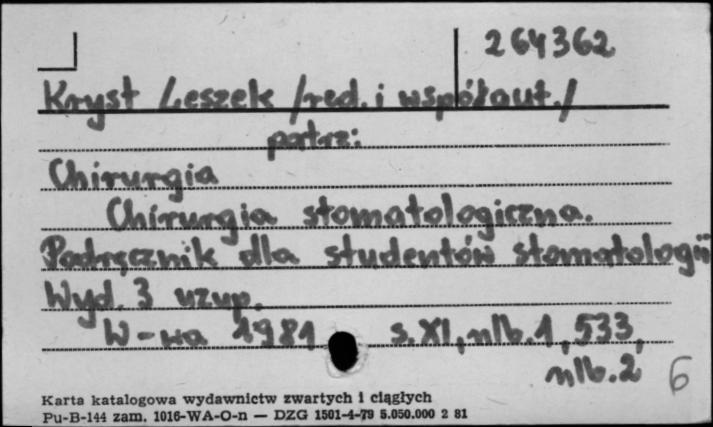 264362
Kryst Leszek /red. i współaut./
patrz:
Chirurgia
Chirurgia stomatologiczna.
Podręcznik dla studentów stomatologii
Wyd. 3 uzup.
W-wa 1981 s. XI, nlb. 1, 533,
nlb. 2
6
Karta katalogowa wydawnictw zwartych i ciągłych
Pu-B-144 zam. 1016-WA-O-n — DZG 1501-4-79 5.050.000 2 81